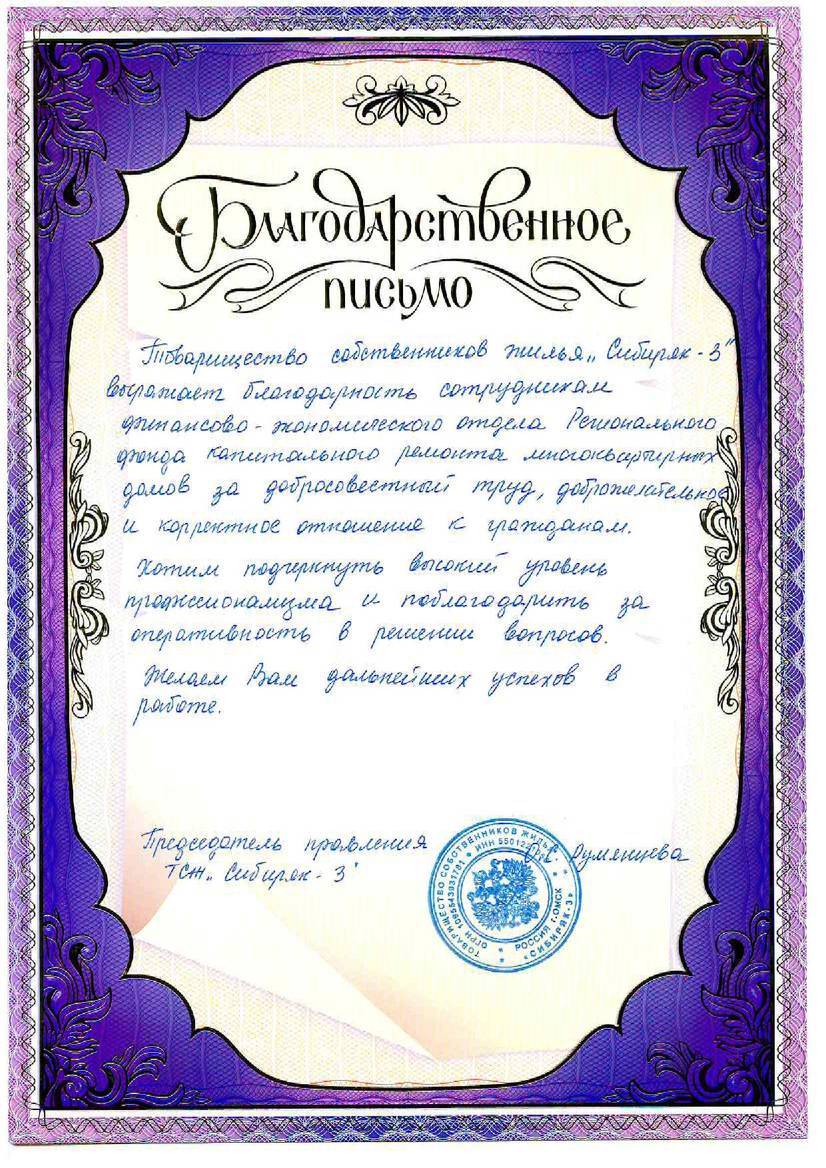 Благодарственное
письмо
Товарищество собственников жилья „Сибиряк-3"
выражает благодарность сотрудникам
финансово-экономического отдела Регионального
фонда капитального ремонта многоквартирных
домов за добросовестный труд, доброжелательное
и корректное отношение к гражданам.
Хотим подчеркнуть высокий уровень
профессионализма и поблагодарить за
оперативность в решении вопросов.
Желаем Вам дальнейших успехов в
работе.
Председатель правления
ТСЖ „Сибиряк-3"
Румянцева
ТОВАРИЩЕСТВО СОБСТВЕННИКОВ ЖИЛЬЯ
«СИБИРЯК-3»
ОГРН 1095543031781 * ИНН
РОССИЯ г.ОМСК